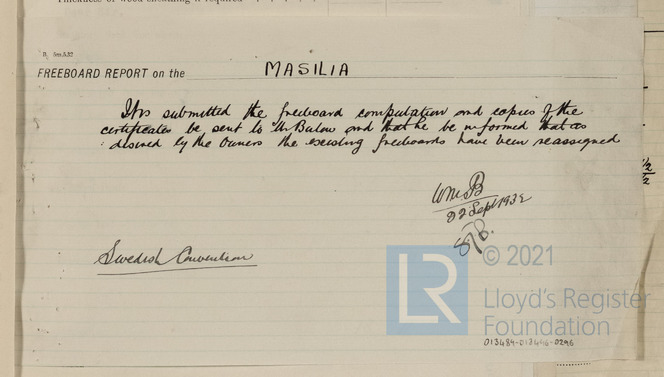 Thickness of wood sheathing if required
R. 5m.5.32
FREEBOARD REPORT on the MASILIA
It is submitted the freeboard computation and copies of the
certificates be sent to Mr Bulow and that he be informed that as
desired by the owners the existing freeboards have been reassigned
WMB
22 Sept 1932
Swedish Convention
LR © 2021
Lloyd's Register
Foundation
013484-013496-0296
1/2
1/2